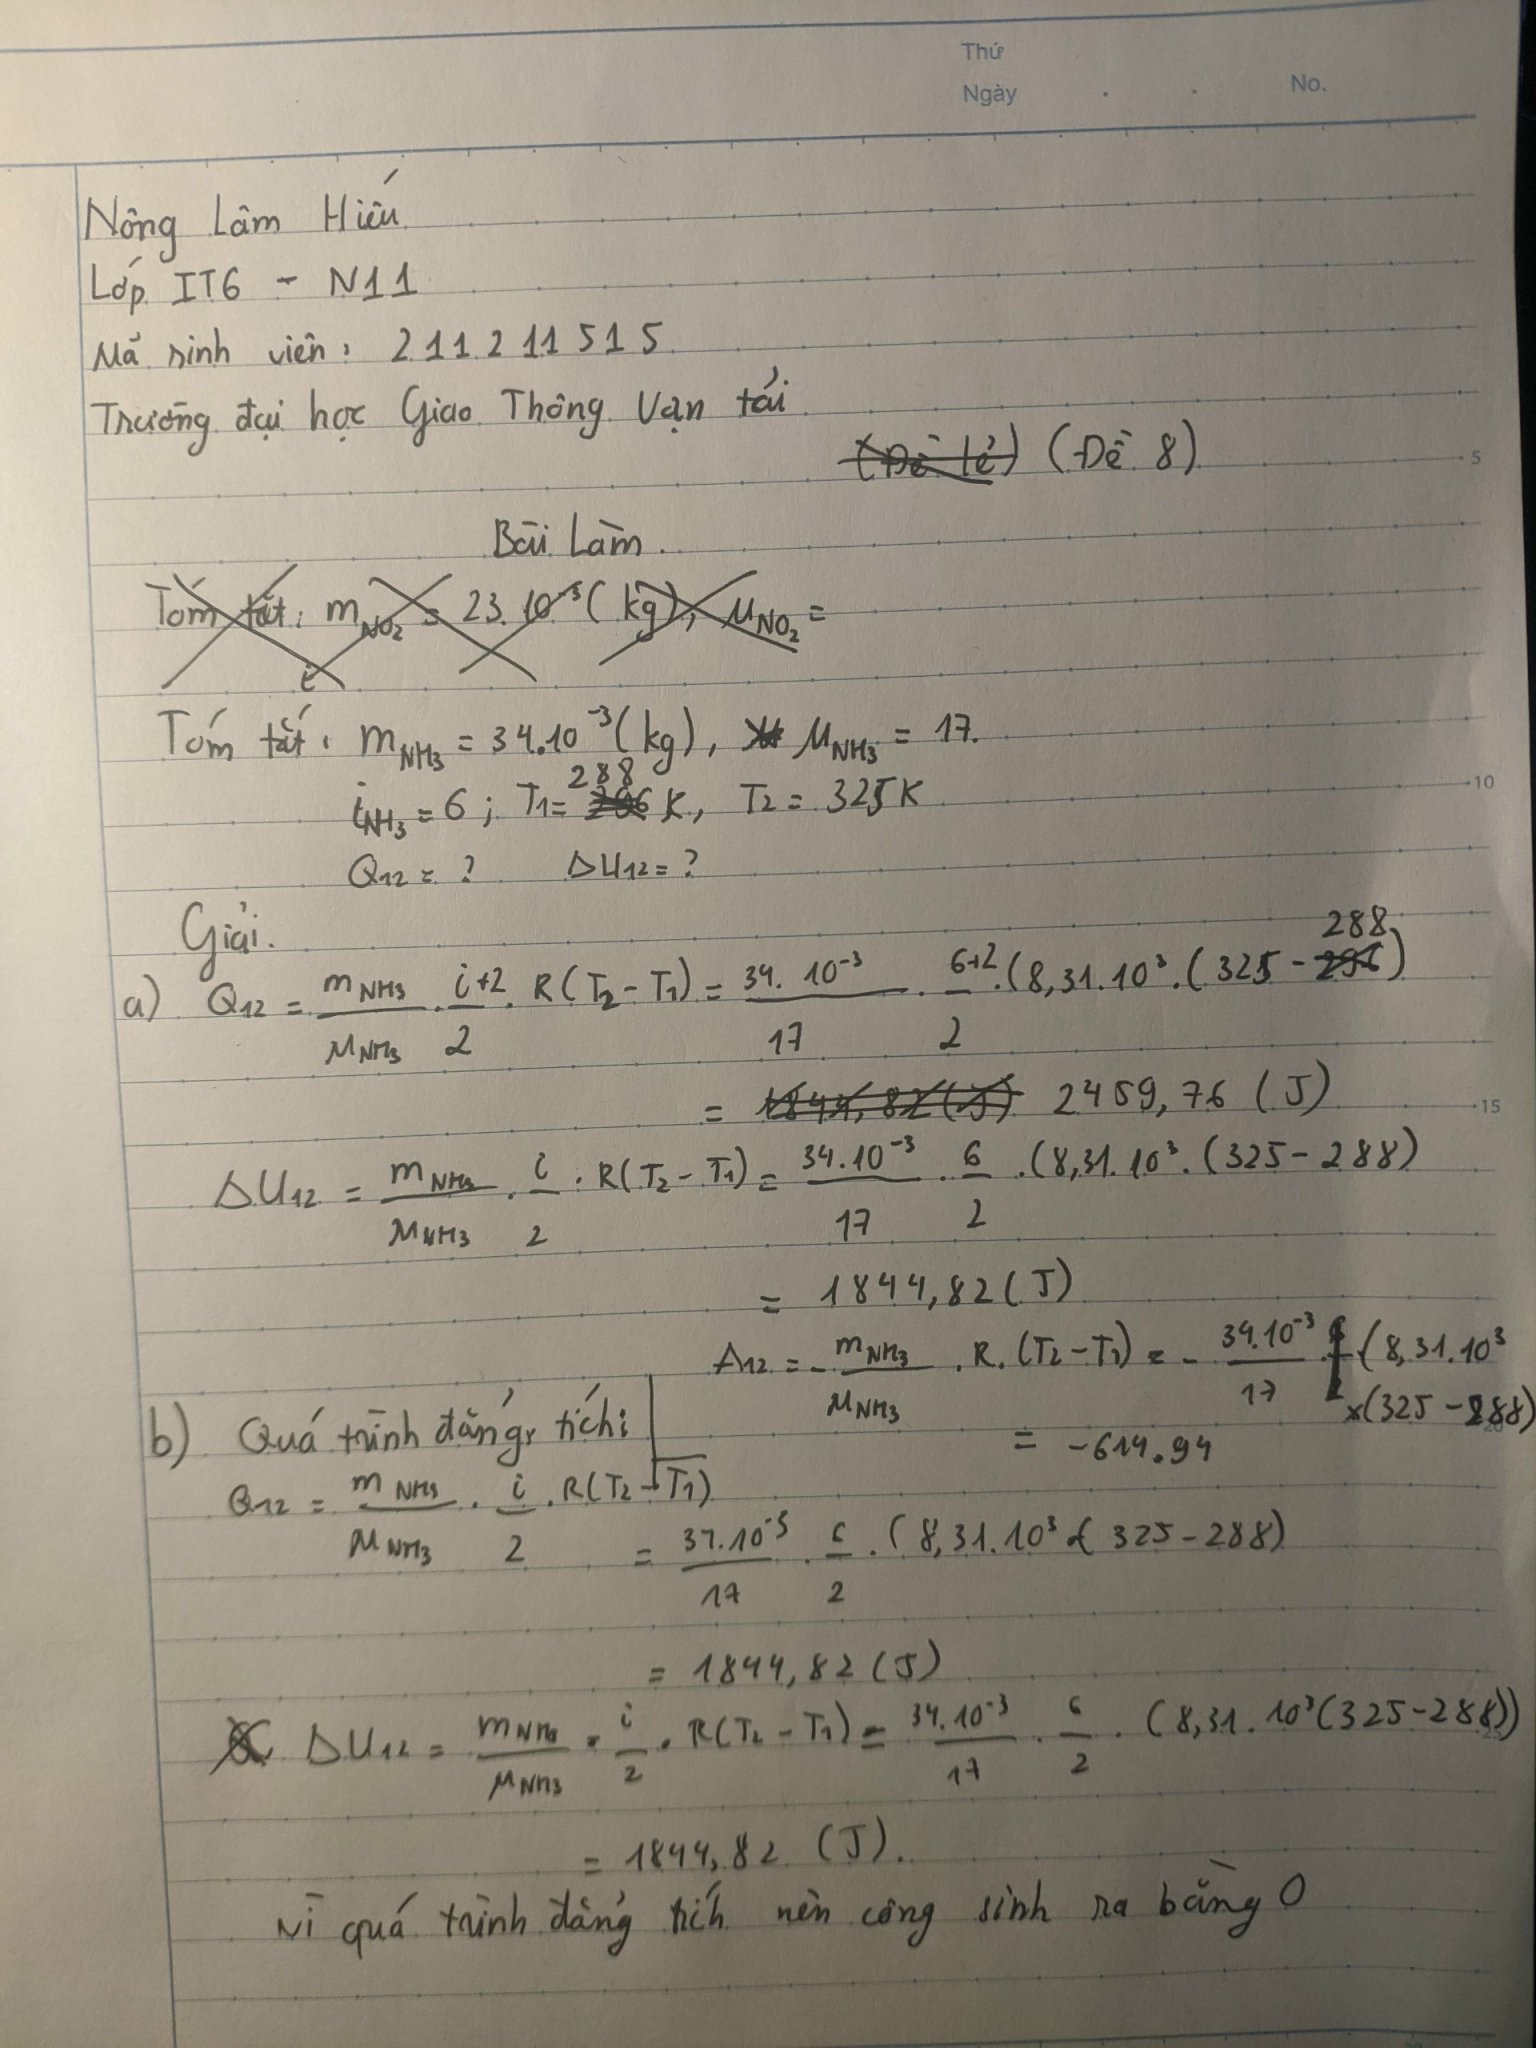 Thứ
Ngày . . No.
Nông Lâm Hiếu
Lớp IT6 - N11
Mã sinh viên: 211211515
Trường đại học Giao Thông Vận tải
(Đề lẻ) (Đề 8)
5
Bài Làm.
Tóm tắt: m_NO₂ = 23.10⁻³ (kg), μ_NO₂ =
i
Tóm tắt: m_NH₃ = 34.10⁻³ (kg), μ_NH₃ = 17.
i_NH₃ = 6; T₁ = 288 K, T₂ = 325K
10
Q₁₂ = ? ΔU₁₂ = ?
Giải.
a) Q₁₂ = m_NH₃/μ_NH₃ . i+2/2 . R(T₂ - T₁) = 34.10⁻³/17 . 6+2/2 . (8,31.10³.(325 - 288)
= 1844,82 (J) 2459,76 (J)
15
ΔU₁₂ = m_NH₃/μ_NH₃ . i/2 . R(T₂ - T₁) = 34.10⁻³/17 . 6/2 . (8,31.10³.(325 - 288)
= 1844,82 (J)
A₁₂ = - m_NH₃/μ_NH₃ . R.(T₂ - T₁) = - 34.10⁻³/17 . (8,31.10³
x(325 - 288)
= -614.94
20
b) Quá trình đẳng tích:
Q₁₂ = m_NH₃/μ_NH₃ . i/2 . R(T₂ - T₁)
= 37.10⁻³/17 . 6/2 . (8,31.10³ ( 325 - 288)
= 1844,82 (J)
ΔU₁₂ = m_NH₃/μ_NH₃ . i/2 . R(T₂ - T₁) = 34.10⁻³/17 . 6/2 . (8,31.10³(325 - 288))
= 1844,82 (J).
Vì quá trình đẳng tích nên công sinh ra bằng 0